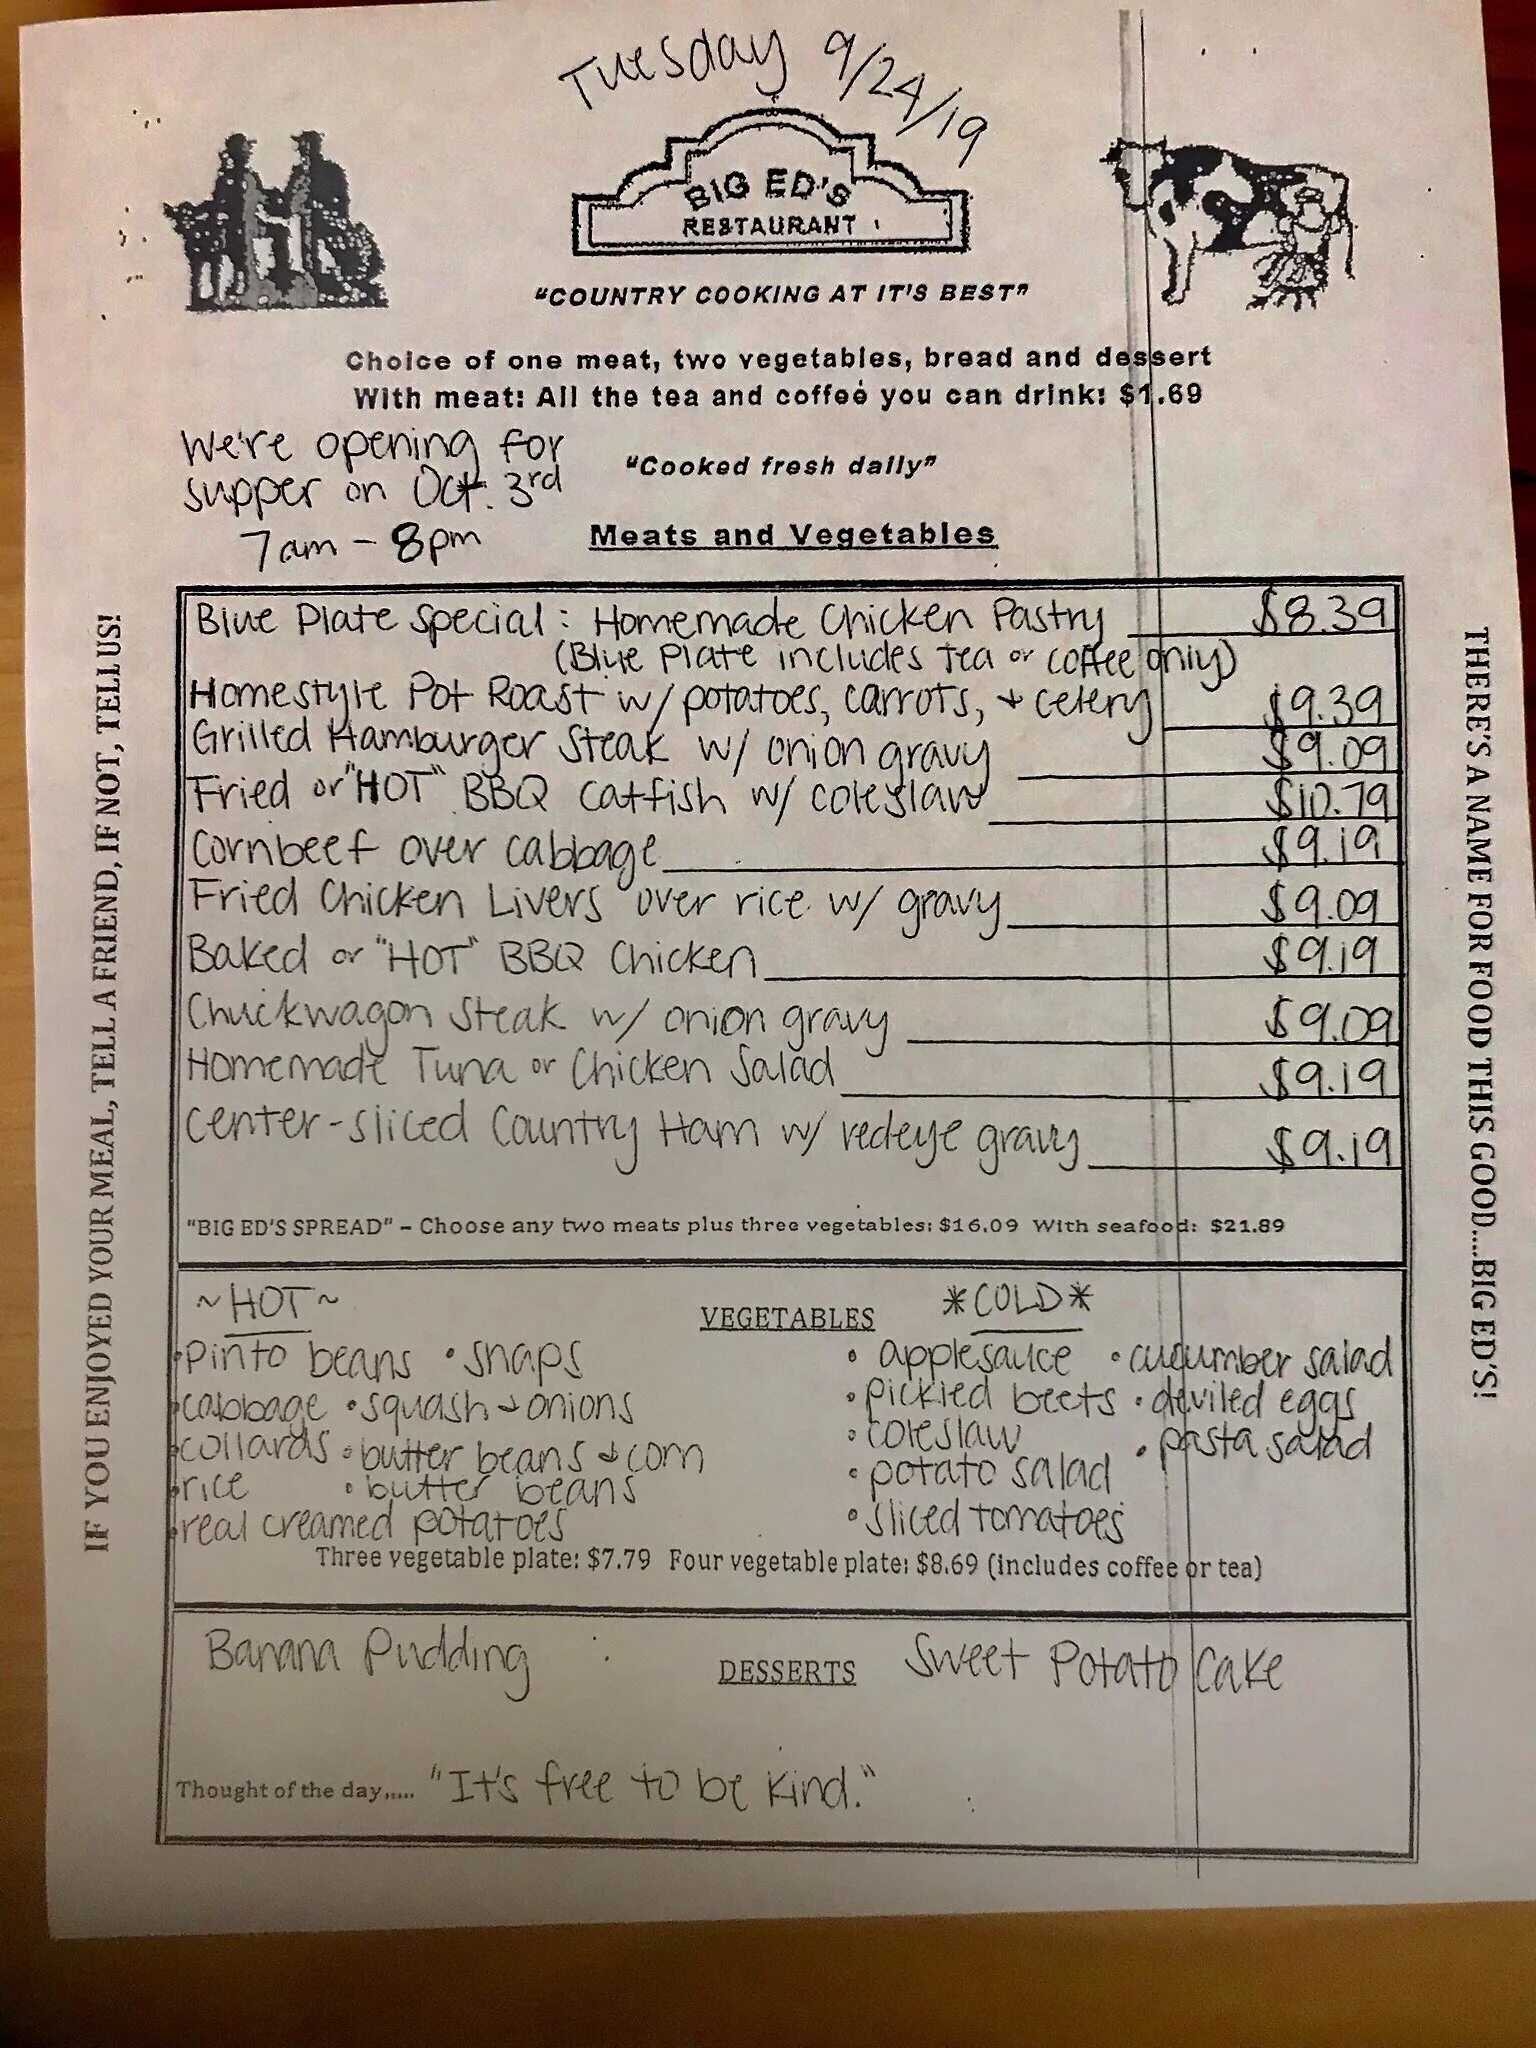 Tuesday 9/24/19
BIG ED'S
RESTAURANT
"COUNTRY COOKING AT IT'S BEST"
Choice of one meat, two vegetables, bread and dessert
With meat: All the tea and coffee you can drink: $1.69
We're opening for
supper on Oct. 3rd
7am - 8pm
"Cooked fresh daily"
Meats and Vegetables
Blue Plate Special: Homemade Chicken Pastry $8.39
(Blue Plate includes tea or coffee only)
Homestyle Pot Roast w/ potatoes, carrots, + celery $9.39
Grilled Hamburger Steak w/ onion gravy $9.09
Fried or "HOT" BBQ Catfish w/ coleslaw $10.79
Cornbeef over cabbage $9.19
Fried Chicken Livers over rice w/ gravy $9.09
Baked or "HOT" BBQ Chicken $9.19
Chuckwagon Steak w/ onion gravy $9.09
Homemade Tuna or Chicken Salad $9.19
Center-sliced Country Ham w/ redeye gravy $9.19
"BIG ED'S SPREAD" – Choose any two meats plus three vegetables: $16.09 With seafood: $21.89
~HOT~ VEGETABLES *COLD*
• pinto beans • snaps • applesauce • cucumber salad
• cabbage • squash + onions • pickled beets • deviled eggs
• collards • butter beans + corn • coleslaw • pasta salad
• rice • butter beans • potato salad
• real creamed potatoes • sliced tomatoes
Three vegetable plate: $7.79 Four vegetable plate: $8.69 (includes coffee or tea)
Banana Pudding DESSERTS Sweet Potato Cake
Thought of the day..... "It's free to be kind."
IF YOU ENJOYED YOUR MEAL, TELL A FRIEND, IF NOT, TELL US!
THERE'S A NAME FOR FOOD THIS GOOD....BIG ED'S!